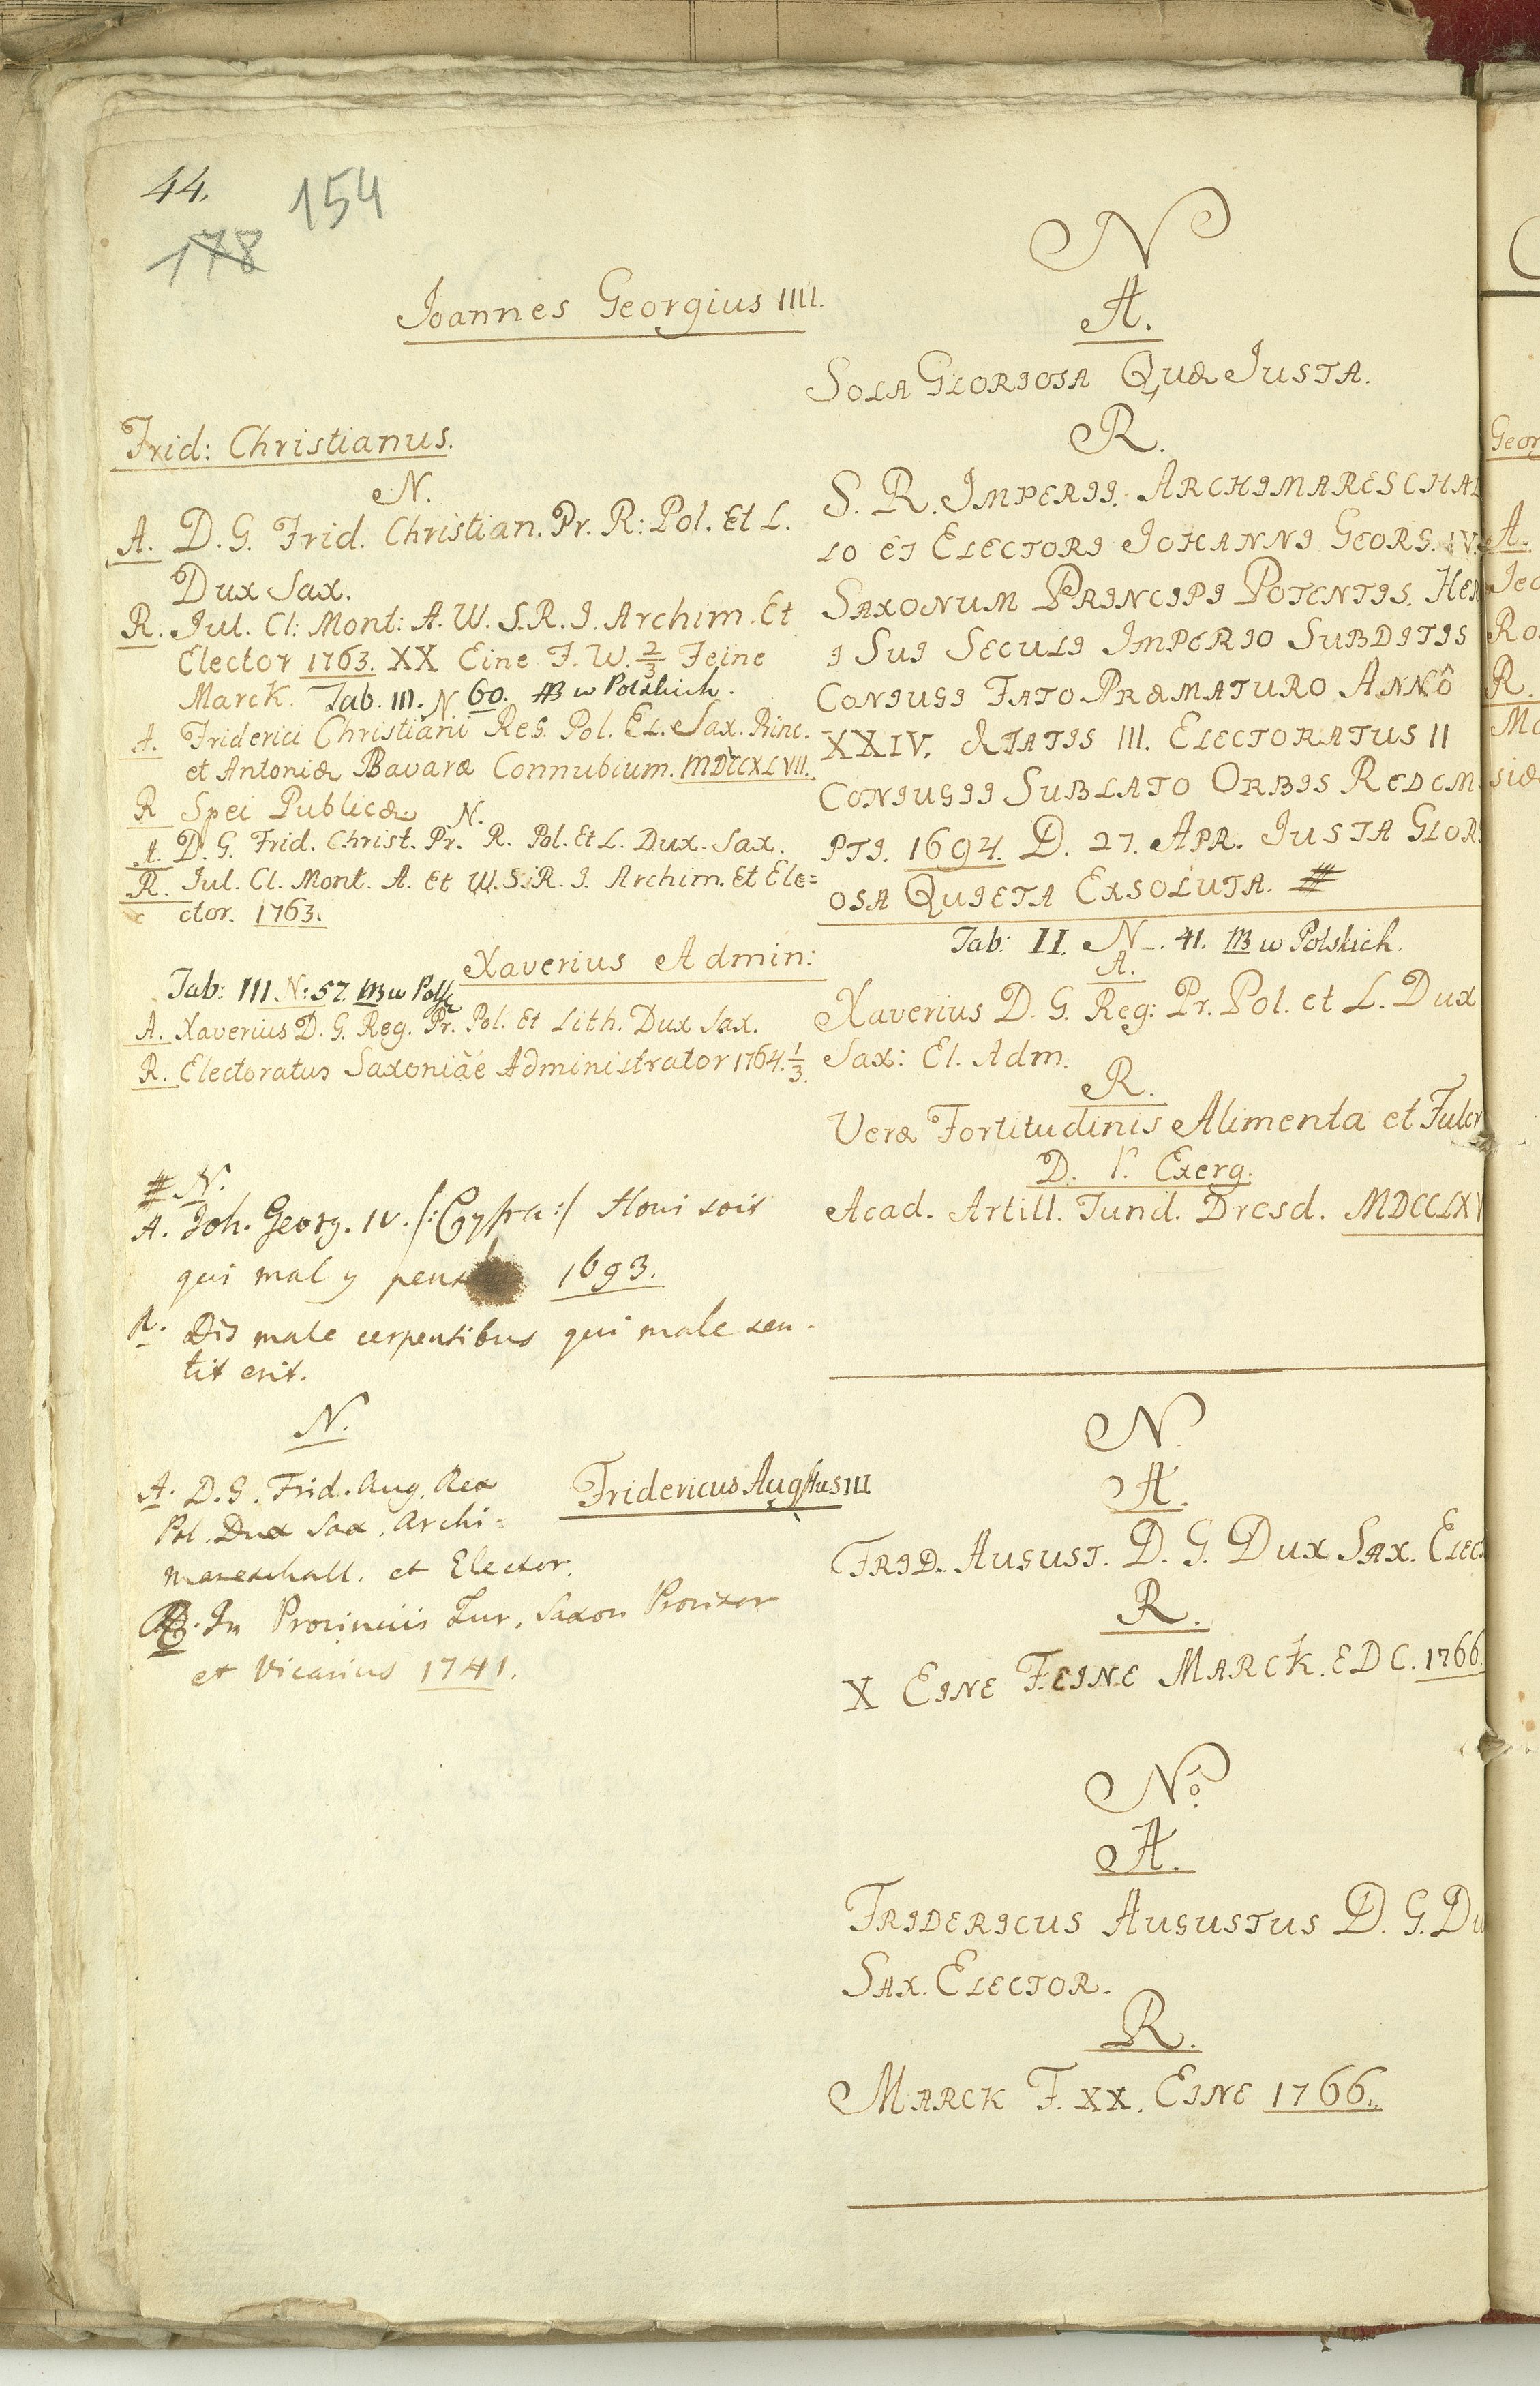 44.
154
178
Joannes Georgius IIII.
Frid: Christianus.
N.
A. D. G. Frid. Christian. Pr. R: Pol. Et L.
Dux Sax.
R. Jul. Cl: Mont: A. W. S. R. I. Archim. Et
Elector 1763. XX Eine F. W. 2/3 Feine
Marck. Tab. III. N 60. w Polskich.
A. Friderici Christiani Reg. Pol. El. Sax. Princ.
et Antoniæ Bavaræ Connubium. MDCCXLVII.
R Spei Publicæ N.
A. D. G. Frid. Christ. Pr. R. Pol. Et L. Dux. Sax.
R. Jul. Cl. Mont. A. et W. S. R. I. Archim. Et Ele=
ctor. 1763.
Xaverius Admin:
Tab: III N: 57. w
A. Xaverius D. G. Reg. Pr. Pol. Et Lith. Dux Sax.
R. Electoratus Saxoniae Administrator 1764. 1/3.
# N.
A. Joh. Georg. IV. /: Cyfra :/ Honi soit
qui mal y 1693.
R. Dis male serpentibus qui male sen-
tit erit.
N.
A. D. G. Frid. Aug. Rex
Pol. Dux Sax. Archi=
mareschall. et Elector.
R. In Provinciis Jur. Saxon Provisor
et Vicarius 1741.
Fridericus Augstus III
N
A.
SOLA GLORIOSA QUÆ JUSTA.
R.
S. R. IMPERII. ARCHIMARESCHAL
LO ET ELECTORI JOHANNI GEORG. IV.
SAXONUM PRINCIPI POTENTIS. HER
I SUI SECULI IMPERIO SUBDITIS
CONIUGI FATO PRÆMATURO ANNÔ
XXIV. ÆTATIS III. ELECTORATUS II
CONIUGII SUBLATO ORBIS REDEM
PTI. 1694. D. 27. APR. JUSTA GLORI
OSA QUIETA EXSOLUTA. #
Tab: II. N. 41. w Polskich.
A.
Xaverius D. G. Reg: Pr. Pol. et L. Dux
Sax: El. Adm.
R.
Veræ Fortitudinis Alimenta et Fulcr
D. r. Exerg.
Acad. Artill. Fund. Dresd. MDCCLXV
N
A.
FRID. AUGUST. D. G. DUX SAX. ELECT
R.
X EINE FEINE MARCK. EDC. 1766.
No
A.
FRIDERICUS AUGUSTUS D. G. DU
SAX. ELECTOR.
R.
MARCK F. XX. EINE 1766.
Geor
A.
Ro
R.
siæ